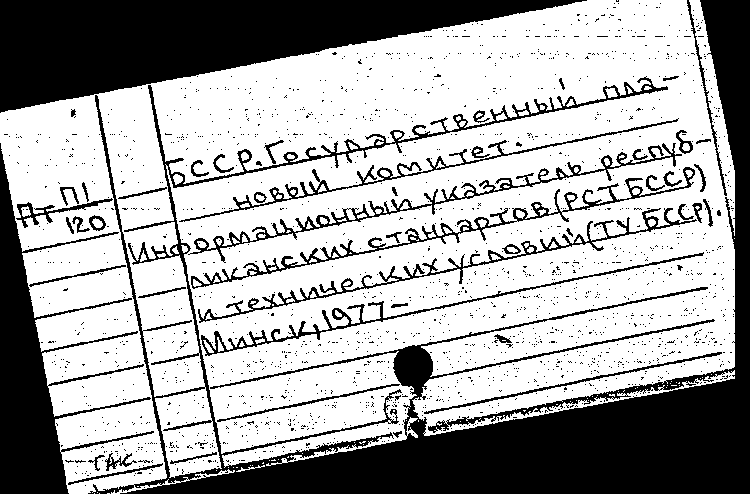 БССР. Государственный пла-
новый комитет.
Пт П1
120
Информационный указатель респуб-
ликанских стандартов (РСТ БССР)
и технических условий (ТУ БССР).
Минск, 1977-
ГАК